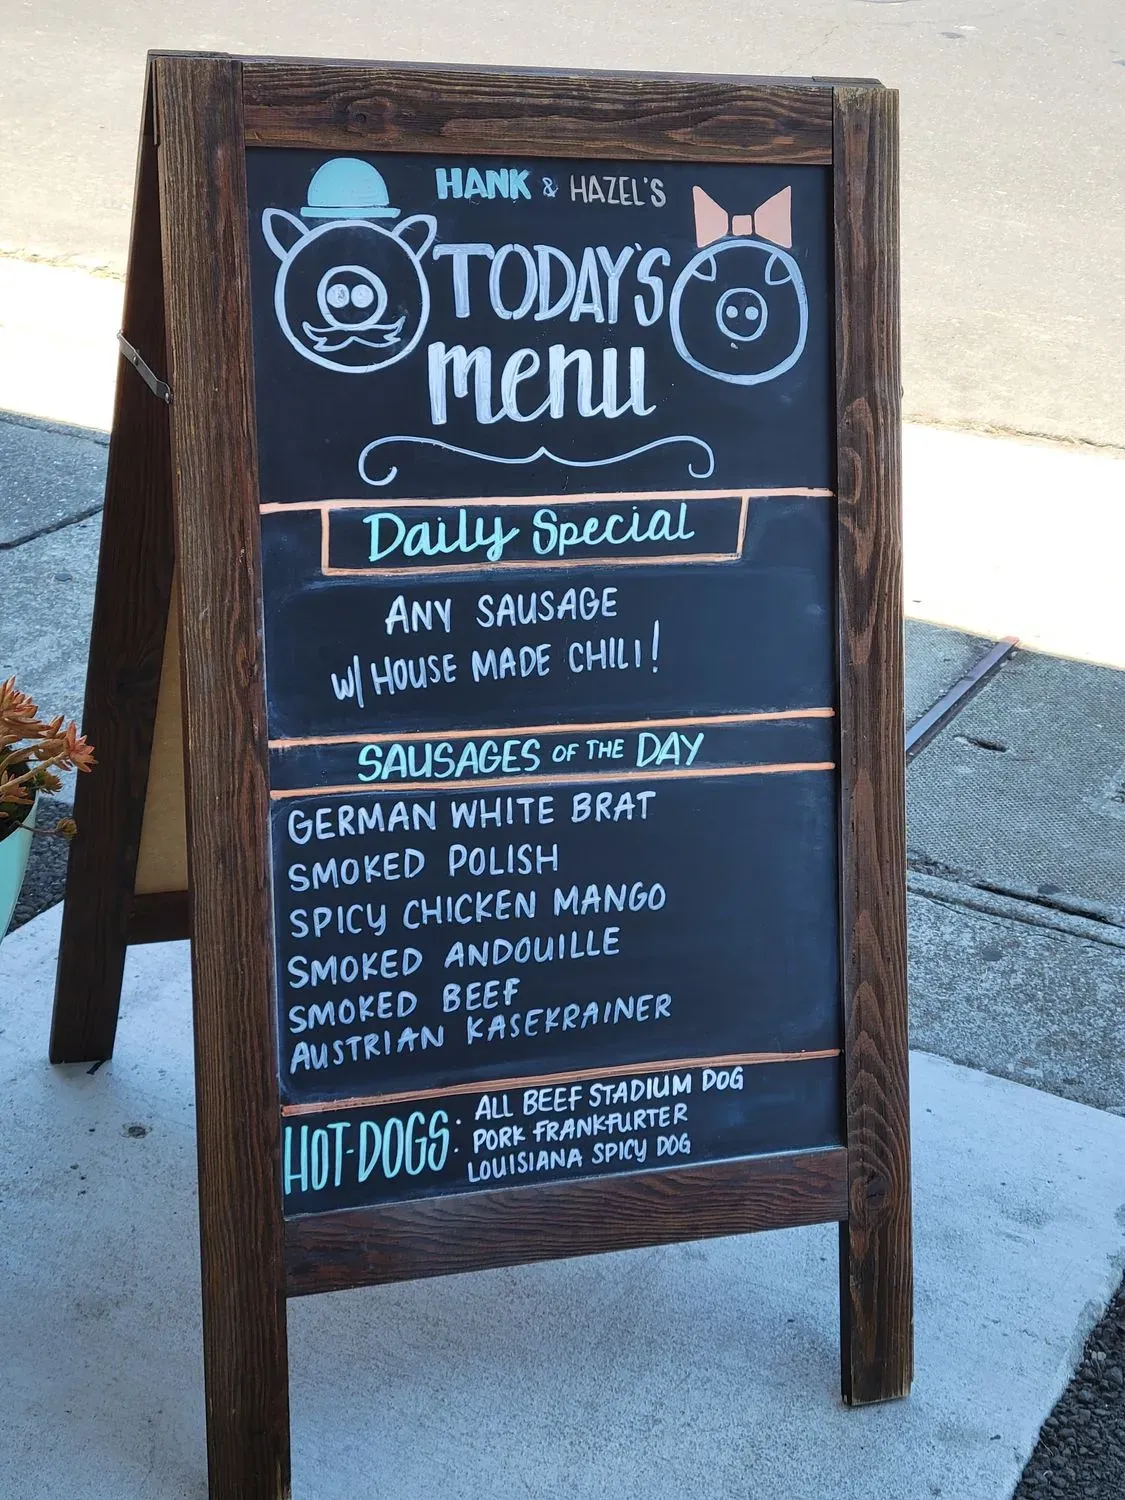 HANK & HAZEL'S
TODAY'S
menu
Daily Special
ANY SAUSAGE
W/ HOUSE MADE CHILI!
SAUSAGES OF THE DAY
GERMAN WHITE BRAT
SMOKED POLISH
SPICY CHICKEN MANGO
SMOKED ANDOUILLE
SMOKED BEEF
AUSTRIAN KASEKRAINER
HOT-DOGS: ALL BEEF STADIUM DOG
PORK FRANKFURTER
LOUISIANA SPICY DOG